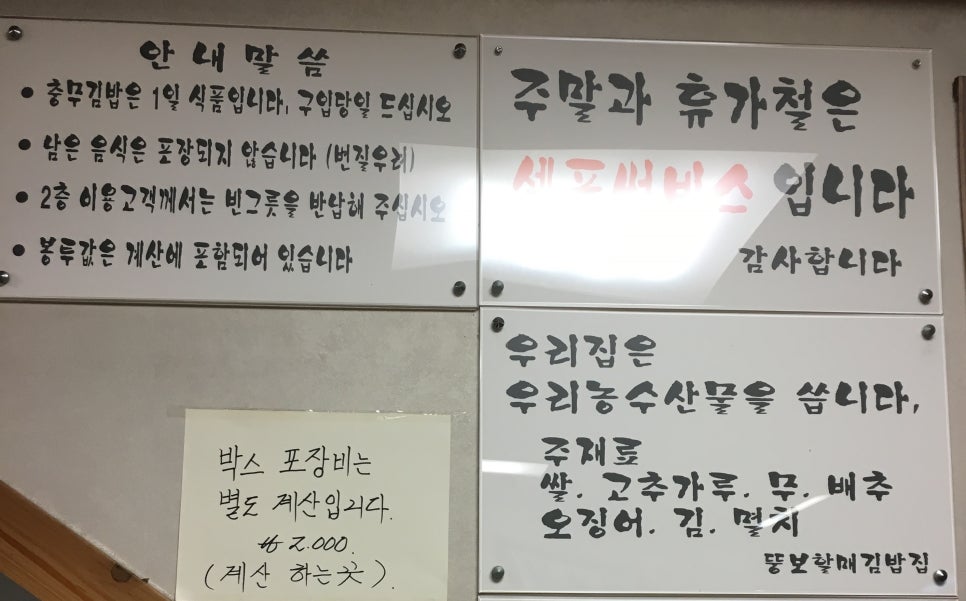 안내말씀
• 충무김밥은 1일 식품입니다, 구입당일 드십시오
• 남은 음식은 포장되지 않습니다 (변질우려)
• 2층 이용고객께서는 빈그릇을 반납해 주십시오
• 봉투값은 계산에 포함되어 있습니다
주말과 휴가철은
셀프써비스 입니다
감사합니다
우리집은
우리농수산물을 씁니다,
주재료
쌀. 고추가루. 무. 배추
오징어. 김. 멸치
뚱보할매김밥집
박스 포장비는
별도 계산입니다.
₩ 2.000.
(계산 하는곳).